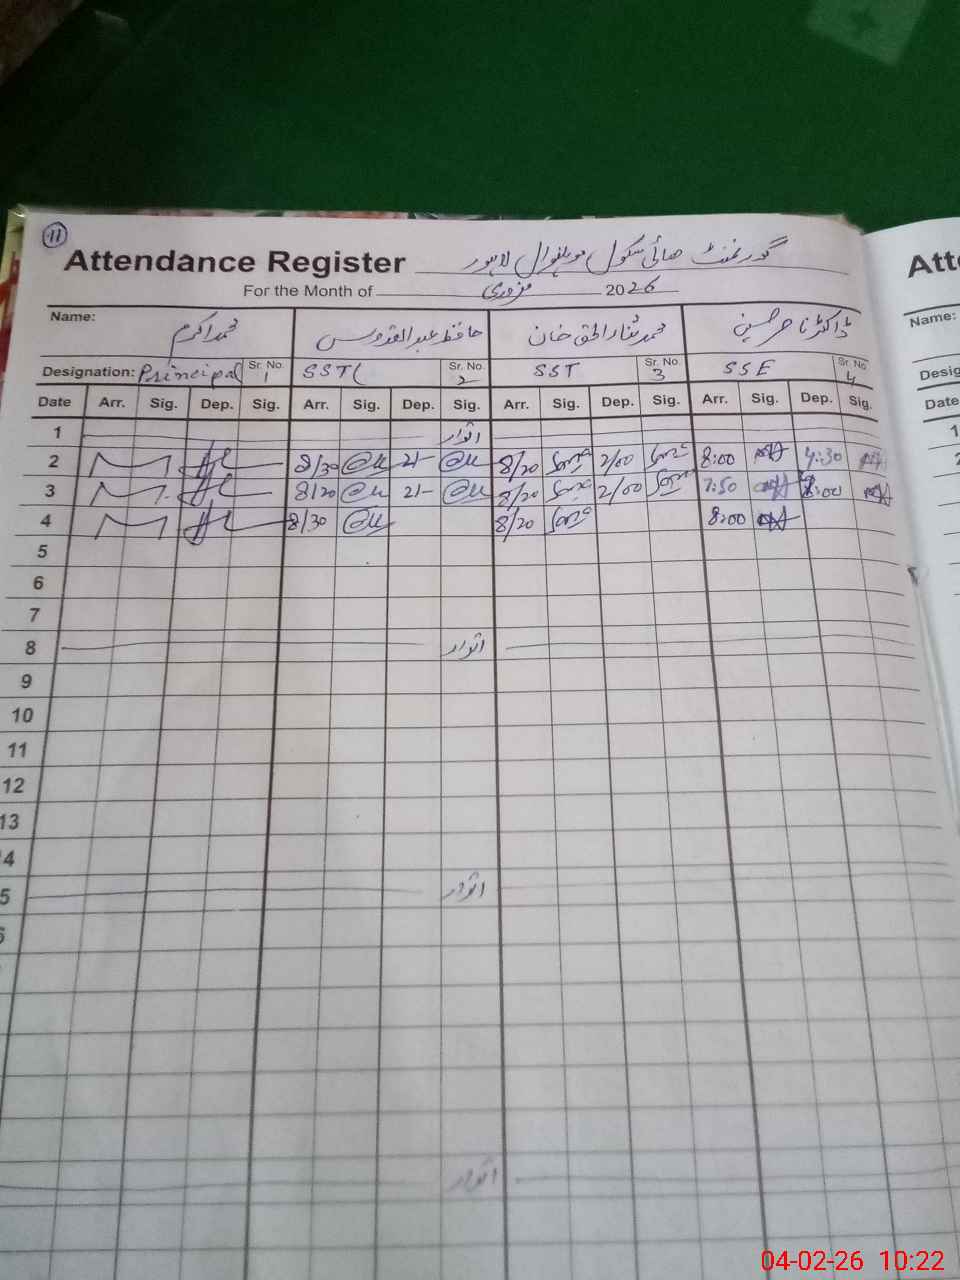 11
Attendance Register گورنمنٹ ھائی سکول موہلنوال لاہور
For the Month of فروری 2026
Name: محمد اکرم حافظ عبدالقدوس محمد ثناءالحق خان ڈاکٹر ناصر حسین
Designation: Principal Sr. No. 1 SST Sr. No. 2 SST Sr. No. 3 SSE Sr. No. 4
Date Arr. Sig. Dep. Sig. Arr. Sig. Dep. Sig. Arr. Sig. Dep. Sig. Arr. Sig. Dep. Sig.
1 اتوار
2 8/30 2/- 8/20 2/00 8:00 4:30
3 8/20 2/- 8/20 2/00 7:50
4 8/30 8/20 8:00
5
6
7
8 اتوار
9
10
11
12
13
4
5 اتوار
اتوار
Atte
Name:
Desig
Date
1
2
04-02-26 10:22